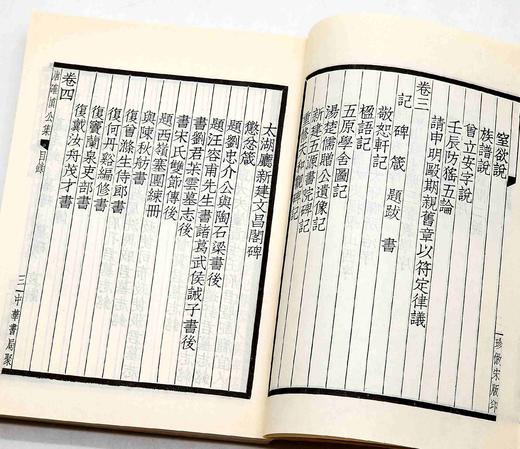 珍倣宋版印
窒欲說
族譜說
曾立安字說
壬辰防猺五論
請申明毆期親舊章以符定律議
卷三
記 碑 箴 題跋 書
敬恕軒記
楹語記
五原學舍圖記
湯楚儒贈公遺像記
新建五原書院碑記
重修天和觀碑記
太湖廳新建文昌閣碑
懲忿箴
題劉忠介公與陶石梁書後
題汪容甫先生書諸葛武侯誡子書後
書劉君榮雲墓志後
書宋氏雙節傳後
題西嶺塞團練冊
與陳秋舫書
復曾滌生侍郎書
復何丹谿編修書
復竇蘭泉吏部書
復戴汝舟茂才書
卷四
唐確慎公集 目錄 三 中華書局聚